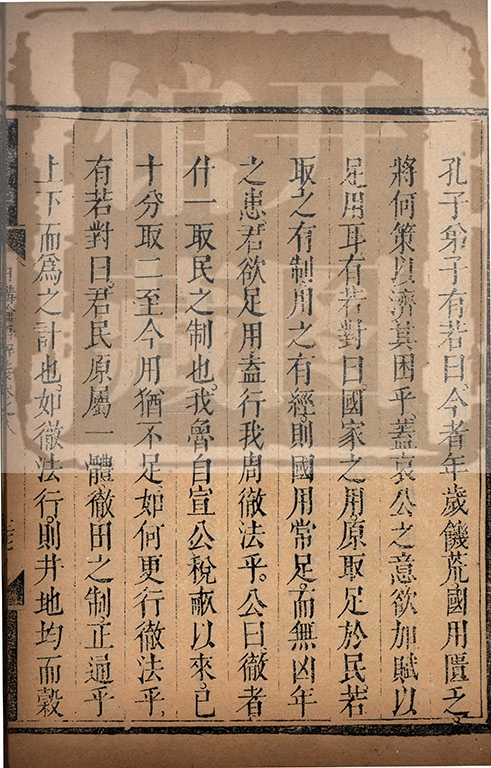 孔子弟子有若曰。今者年歲饑荒國用匱乏。
將何策以濟其困乎。蓋哀公之意。欲加賦以
足用耳。有若對曰。國家之用。原取足於民。若
取之有制。用之有經。則國用常足。而無凶年
之患。君欲足用。盍行我周徹法乎。公曰。徹者。
什一取民之制也。我魯自宣公稅畝以來。已
十分取二。至今用猶不足。如何更行徹法乎。
有若對曰。君民原屬一體。徹田之制。正通乎
上下而為之計也。如徹法行。則井地均而穀